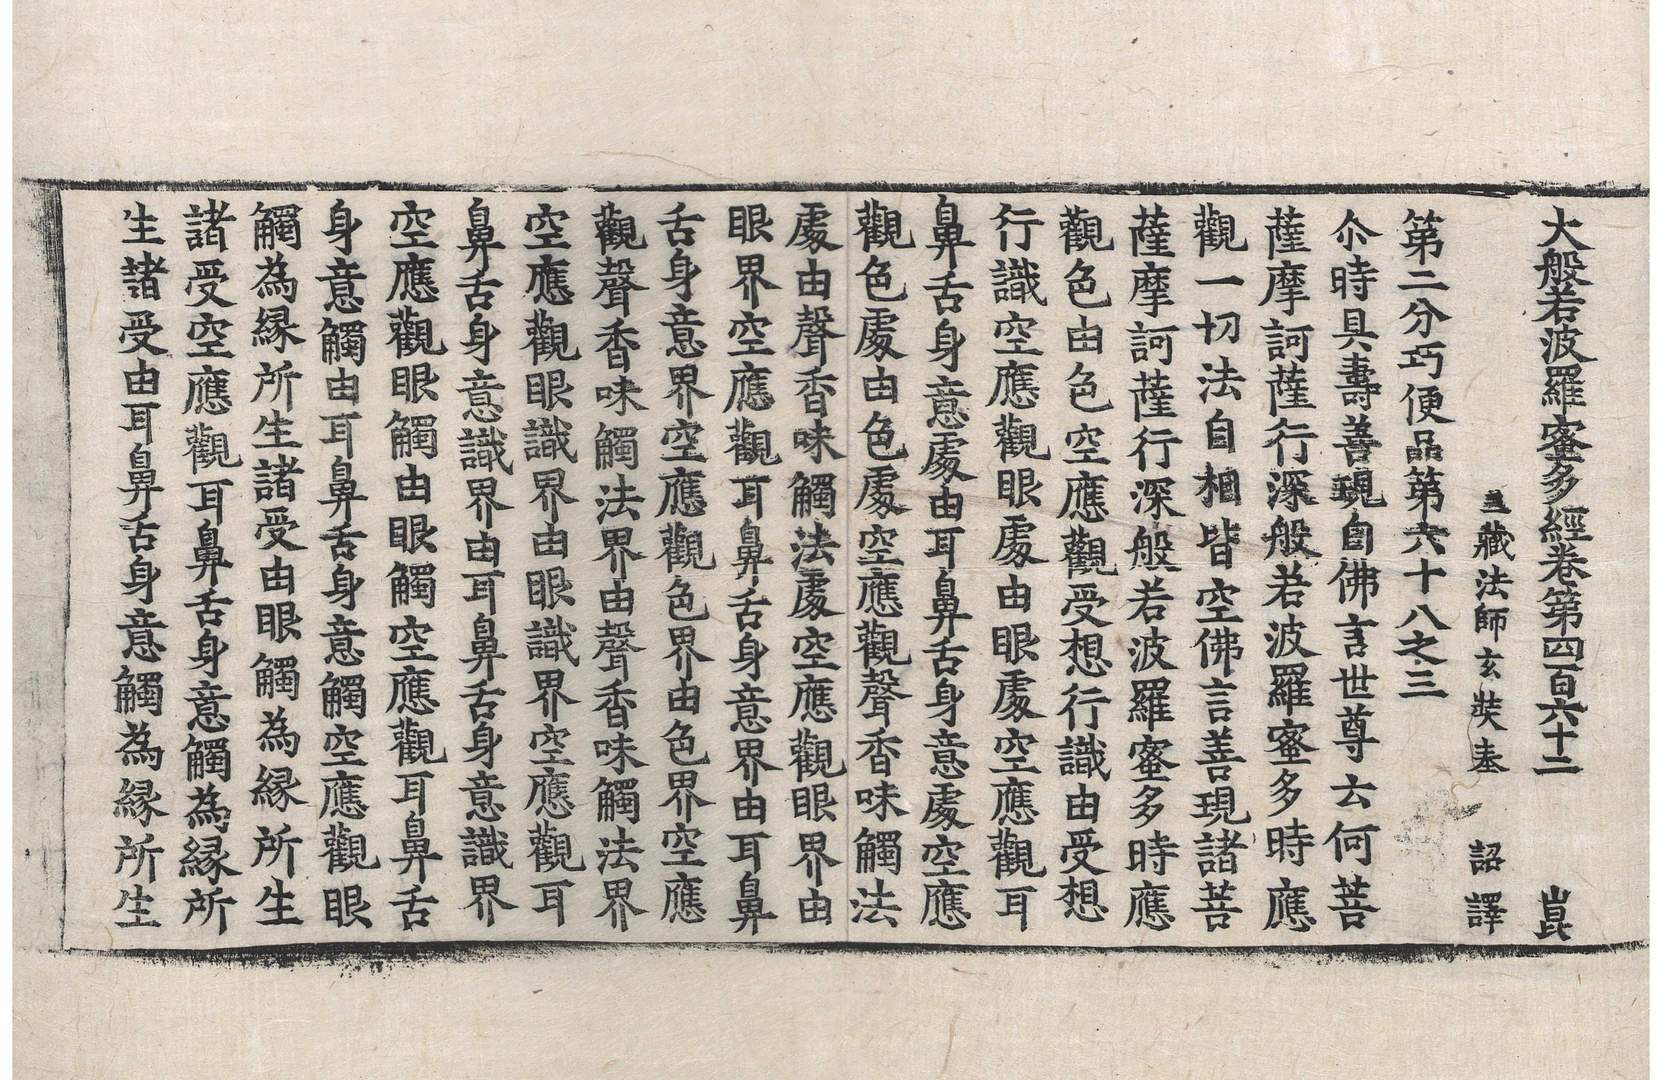 大般若波羅蜜多經卷第四百六十二 崑
三藏法師玄奘奉 詔譯
第二分巧便品第六十八之三
尒時具壽善現白佛言世尊云何菩
薩摩訶薩行深般若波羅蜜多時應
觀一切法自相皆空佛言善現諸菩
薩摩訶薩行深般若波羅蜜多時應
觀色由色空應觀受想行識由受想
行識空應觀眼處由眼處空應觀耳
鼻舌身意處由耳鼻舌身意處空應
觀色處由色處空應觀聲香味觸法
處由聲香味觸法處空應觀眼界由
眼界空應觀耳鼻舌身意界由耳鼻
舌身意界空應觀色界由色界空應
觀聲香味觸法界由聲香味觸法界
空應觀眼識界由眼識界空應觀耳
鼻舌身意識界由耳鼻舌身意識界
空應觀眼觸由眼觸空應觀耳鼻舌
身意觸由耳鼻舌身意觸空應觀眼
觸為緣所生諸受由眼觸為緣所生
諸受空應觀耳鼻舌身意觸為緣所
生諸受由耳鼻舌身意觸為緣所生